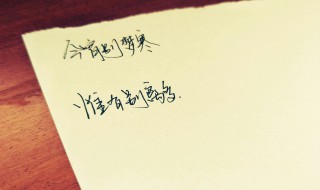 今宵别梦寒
惟有别离多.